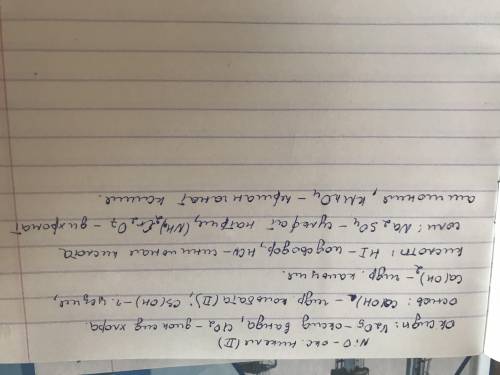 NiO - окс. никеля (II)
Оксиды: V₂O₅ - оксид ванадия, ClO₂ - диоксид хлора.
основ: Co(OH)₂ - гидр кобальта (II); Cs(OH) - г. цезия,
Ca(OH)₂ - гидр. кальция.
кислот: HI - иодоводор, HCN - синильная кислота
соли: Na₂SO₄ - сульфат натрия, (NH₄)₂Cr₂O₇ - дихромат
аммония, KMnO₄ - перманганат калия.